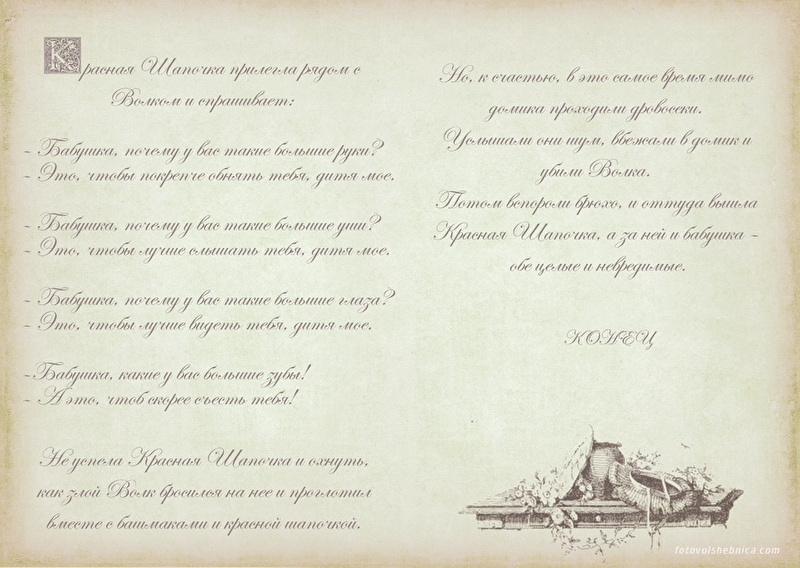 Красная Шапочка прилегла рядом с
Волком и спрашивает:
- Бабушка, почему у вас такие большие руки?
- Это, чтобы покрепче обнять тебя, дитя мое.
- Бабушка, почему у вас такие большие уши?
- Это, чтобы лучше слышать тебя, дитя мое.
- Бабушка, почему у вас такие большие глаза?
- Это, чтобы лучше видеть тебя, дитя мое.
- Бабушка, какие у вас большие зубы!
- А это, чтоб скорее съесть тебя!
Не успела Красная Шапочка и охнуть,
как злой Волк бросился на нее и проглотил
вместе с башмаками и красной шапочкой.
Но, к счастью, в это самое время мимо
домика проходили дровосеки.
Услышали они шум, вбежали в домик и
убили Волка.
Потом вспороли брюхо, и оттуда вышла
Красная Шапочка, а за ней и бабушка -
обе целые и невредимые.
КОНЕЦ
fotovolshebnica.com